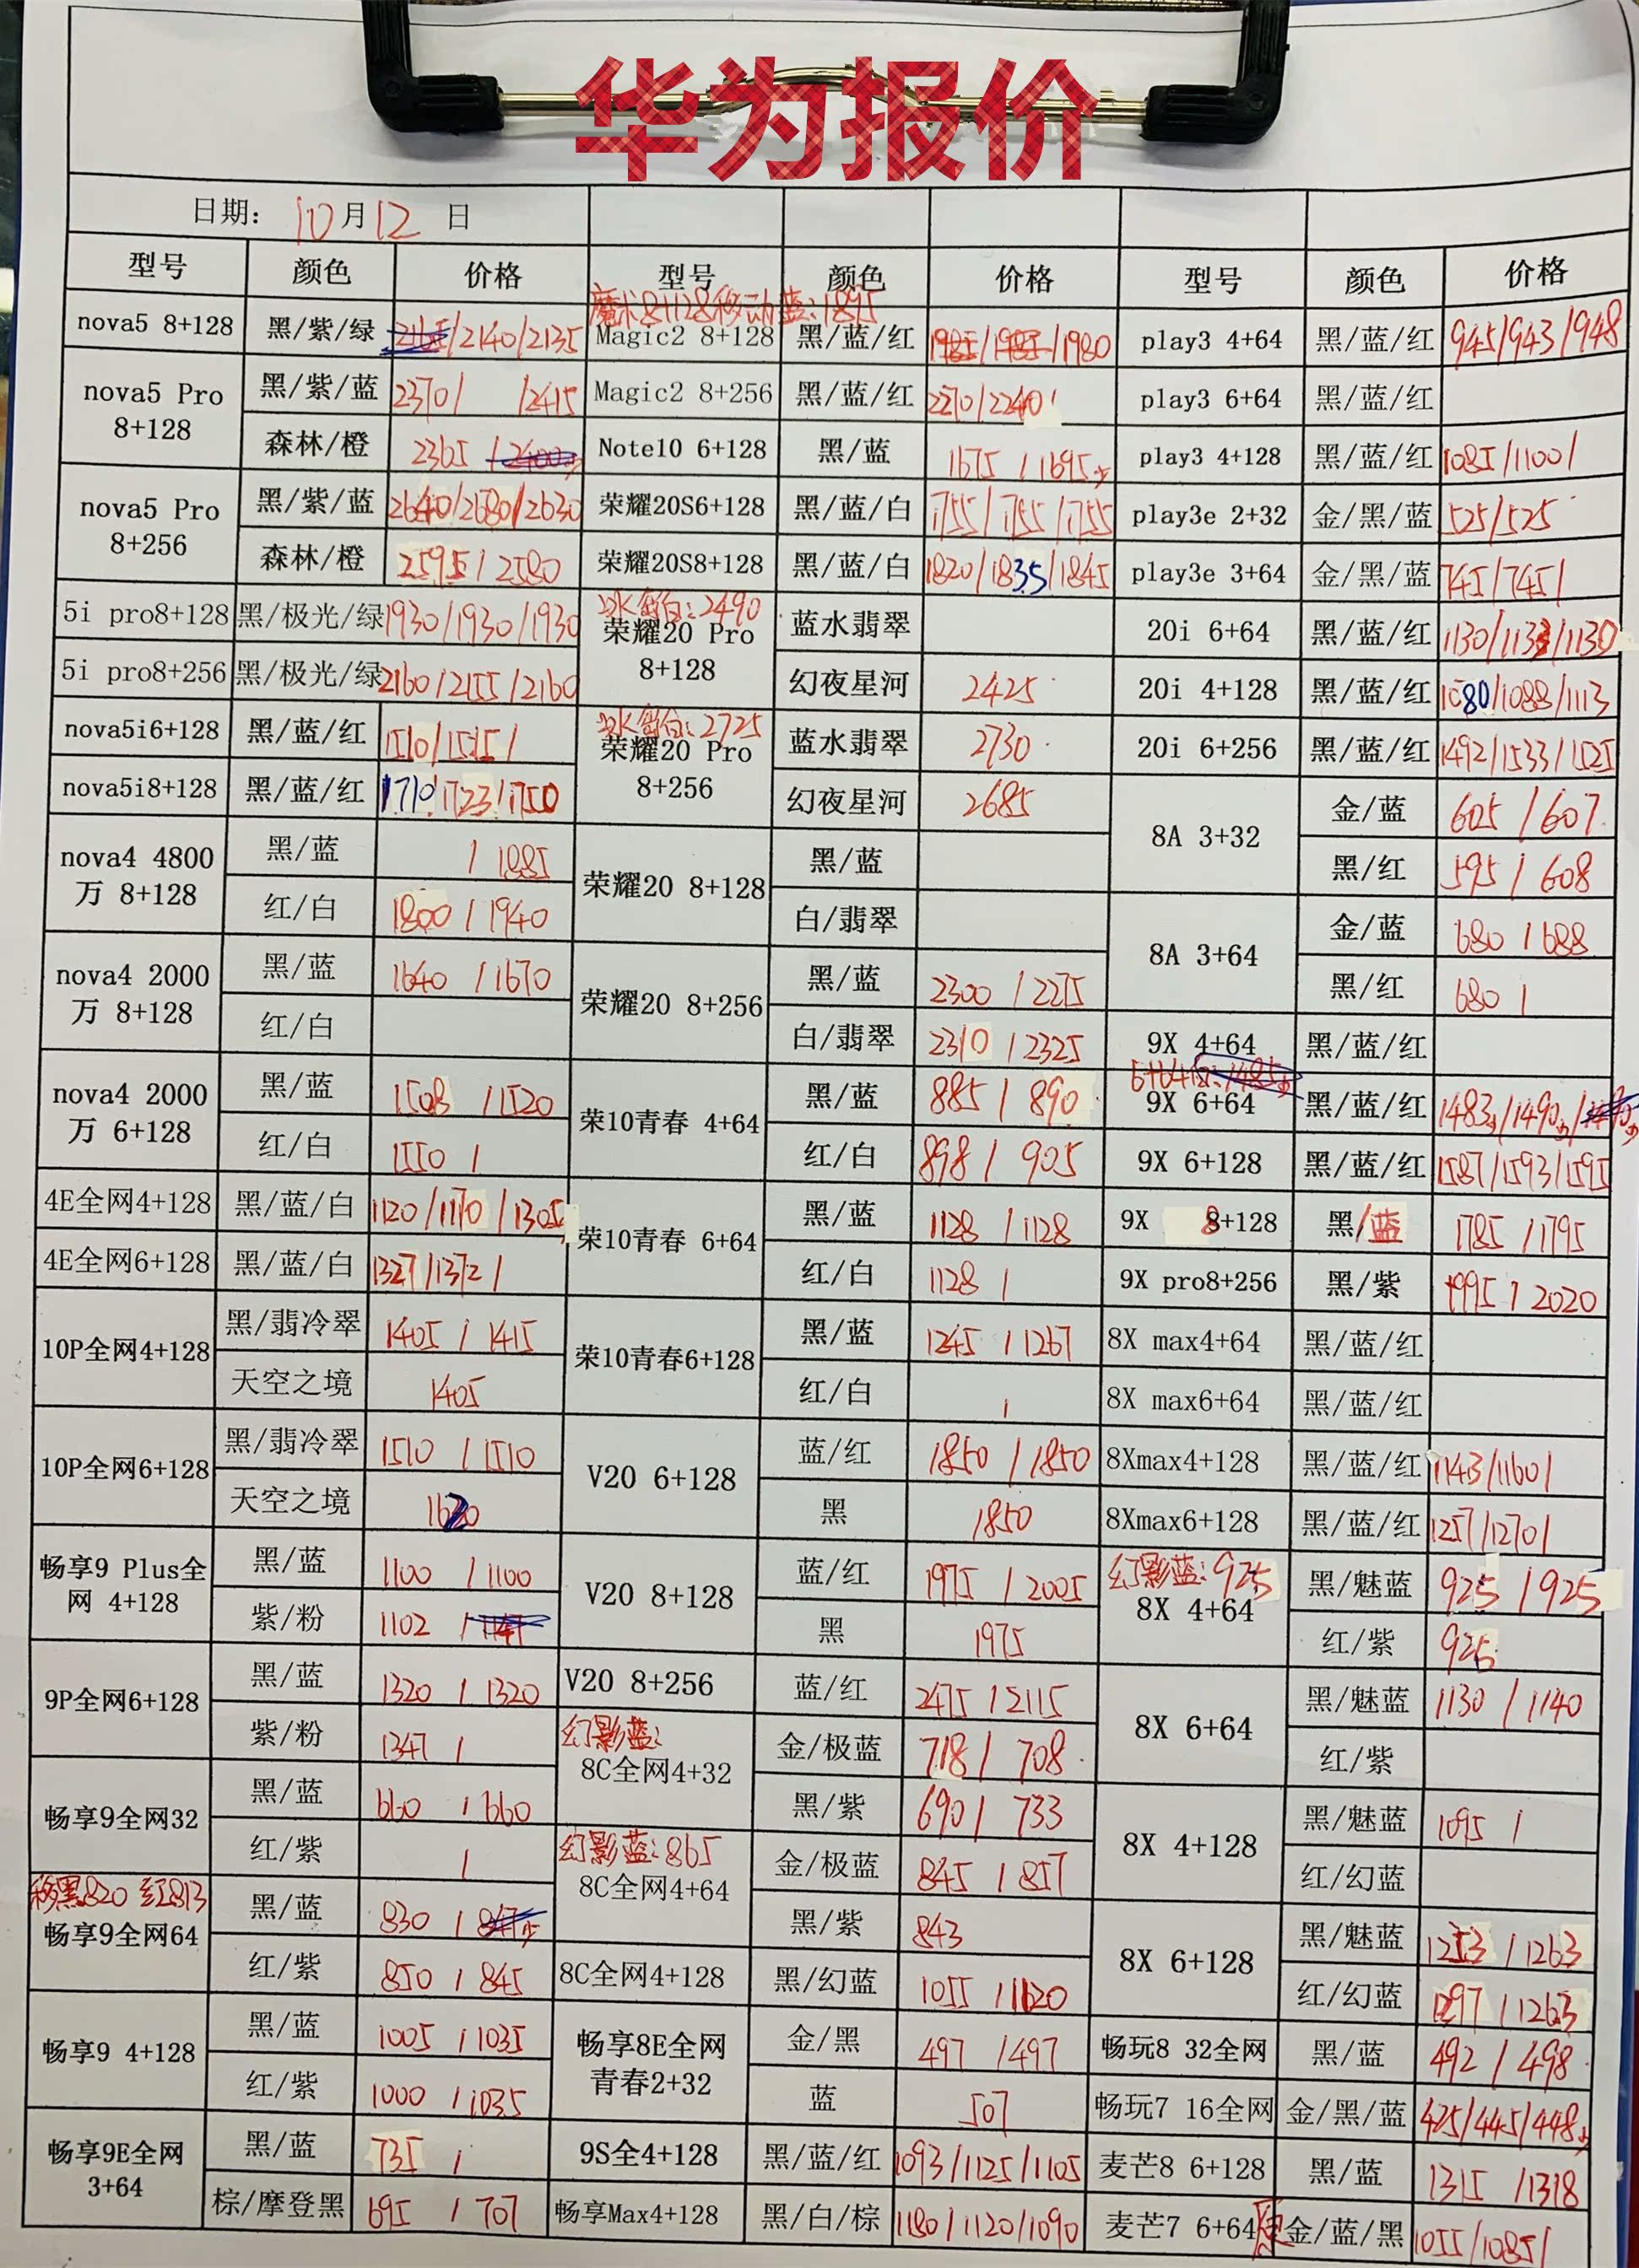 华为报价
日期: 10月12日
型号 颜色 价格 型号 颜色 价格 型号 颜色 价格
魔术8+128移动蓝:1895
nova5 8+128 黑/紫/绿 /2140/2135 Magic2 8+128 黑/蓝/红 /1980 play3 4+64 黑/蓝/红 945/943/948
nova5 Pro 8+128 黑/紫/蓝 2370/ /2415 Magic2 8+256 黑/蓝/红 2210/2240/ play3 6+64 黑/蓝/红
森林/橙 2365 / Note10 6+128 黑/蓝 1675 /1695少 play3 4+128 黑/蓝/红 1085/1100/
nova5 Pro 8+256 黑/紫/蓝 2640/2680/2630 荣耀20S6+128 黑/蓝/白 1755/1755/1755 play3e 2+32 金/黑/蓝 525/525
森林/橙 2595/2580 荣耀20S8+128 黑/蓝/白 1820/1835/1845 play3e 3+64 金/黑/蓝 745/745/
5i pro8+128 黑/极光/绿 1930/1930/1930 冰岛白:2490 荣耀20 Pro 8+128 蓝水翡翠 20i 6+64 黑/蓝/红 1130/1133/1130
5i pro8+256 黑/极光/绿 2160/2155/2160 幻夜星河 2425 20i 4+128 黑/蓝/红 1080/1088/1113
nova5i6+128 黑/蓝/红 1510/1515/ 冰岛白:2725 荣耀20 Pro 8+256 蓝水翡翠 2730 20i 6+256 黑/蓝/红 1492/1533/1525
nova5i8+128 黑/蓝/红 1710/1723/1750 幻夜星河 2685 8A 3+32 金/蓝 605/607
nova4 4800万 8+128 黑/蓝 / 1885 荣耀20 8+128 黑/蓝 黑/红 595/608
红/白 1800/1940 白/翡翠 8A 3+64 金/蓝 680/688
nova4 2000万 8+128 黑/蓝 1640/1670 荣耀20 8+256 黑/蓝 2300/2275 黑/红 680/
红/白 白/翡翠 2310/2325 9X 4+64 黑/蓝/红
nova4 2000万 6+128 黑/蓝 1508/1520 荣10青春 4+64 黑/蓝 885/890 9X 6+64 黑/蓝/红 1483少/1490少/
红/白 1550/ 红/白 898/905 9X 6+128 黑/蓝/红 1587/1593/1595
4E全网4+128 黑/蓝/白 1120/1170/1305 荣10青春 6+64 黑/蓝 1128/1128 9X 8+128 黑/蓝 1785/1795
4E全网6+128 黑/蓝/白 1327/1372/ 红/白 1128/ 9X pro8+256 黑/紫 1995/2020
10P全网4+128 黑/翡冷翠 1405/1415 荣10青春6+128 黑/蓝 1245/1267 8X max4+64 黑/蓝/红
天空之境 1405 红/白 / 8X max6+64 黑/蓝/红
10P全网6+128 黑/翡冷翠 1510/1510 V20 6+128 蓝/红 1850/1850 8Xmax4+128 黑/蓝/红 1143/1160/
天空之境 1620 黑 1850 8Xmax6+128 黑/蓝/红 1257/1270/
畅享9 Plus全网 4+128 黑/蓝 1100/1100 V20 8+128 蓝/红 1975/2005 幻影蓝:925 8X 4+64 黑/魅蓝 925/925
紫/粉 1102/ 黑 1975 红/紫 925
9P全网6+128 黑/蓝 1320/1320 V20 8+256 蓝/红 2475/2115 8X 6+64 黑/魅蓝 1130/1140
紫/粉 1347/ 幻影蓝: 8C全网4+32 金/极蓝 718/708 红/紫
畅享9全网32 黑/蓝 660/660 黑/紫 690/733 8X 4+128 黑/魅蓝 1095/
红/紫 / 幻影蓝:865 8C全网4+64 金/极蓝 845/857 红/幻蓝
移黑820 红813 畅享9全网64 黑/蓝 830/ 黑/紫 843 8X 6+128 黑/魅蓝 1253/1263
红/紫 850/845 8C全网4+128 黑/幻蓝 1055/1120 红/幻蓝 1297/1263
畅享9 4+128 黑/蓝 1005/1035 畅享8E全网青春2+32 金/黑 497/497 畅玩8 32全网 黑/蓝 492/498
红/紫 1000/1035 蓝 507 畅玩7 16全网 金/黑/蓝 425/445/448少
畅享9E全网 3+64 黑/蓝 735/ 9S全4+128 黑/蓝/红 1093/1125/1105 麦芒8 6+128 黑/蓝 1315/1318
棕/摩登黑 695/707 畅享Max4+128 黑/白/棕 1180/1120/1090 麦芒7 6+64 金/蓝/黑 1055/1085/